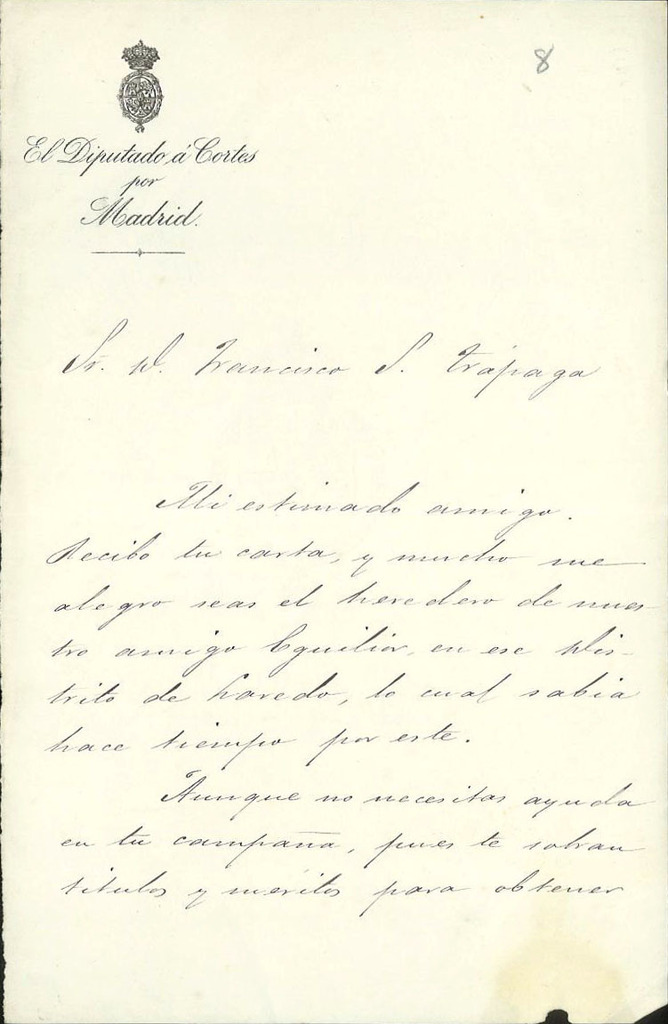 8
El Diputado á Cortes
por
Madrid.
Sr. D. Francisco S. Trápaga
Mi estimado amigo.
Recibo tu carta, y mucho me
alegro seas el heredero de nues
tro amigo Eguilior, en ese Dis-
trito de Laredo, lo cual sabia
hace tiempo por este.
Aunque no necesitas ayuda
en tu campaña, pues te sobran
titulos y meritos para obtener